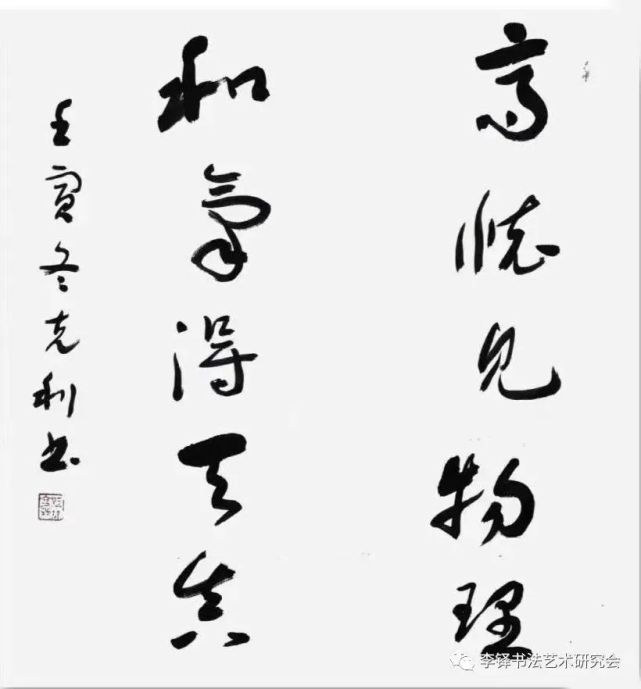 高怀见物理
和气得天真
壬寅冬克利书
李铎书法艺术研究会